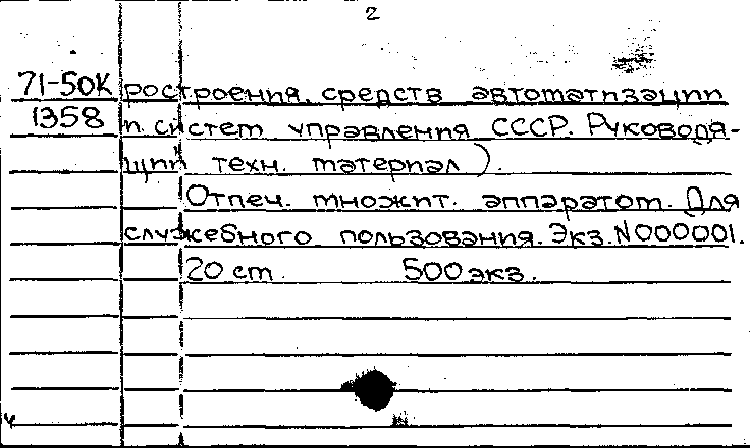 2
71-50К ростроения, средств автоматизации
1358 и систем управления СССР. Руководя-
щий техн. материал).
Отпеч. множит. аппаратом. Для
служебного пользования. Экз. N000001.
20 см. 500 экз.